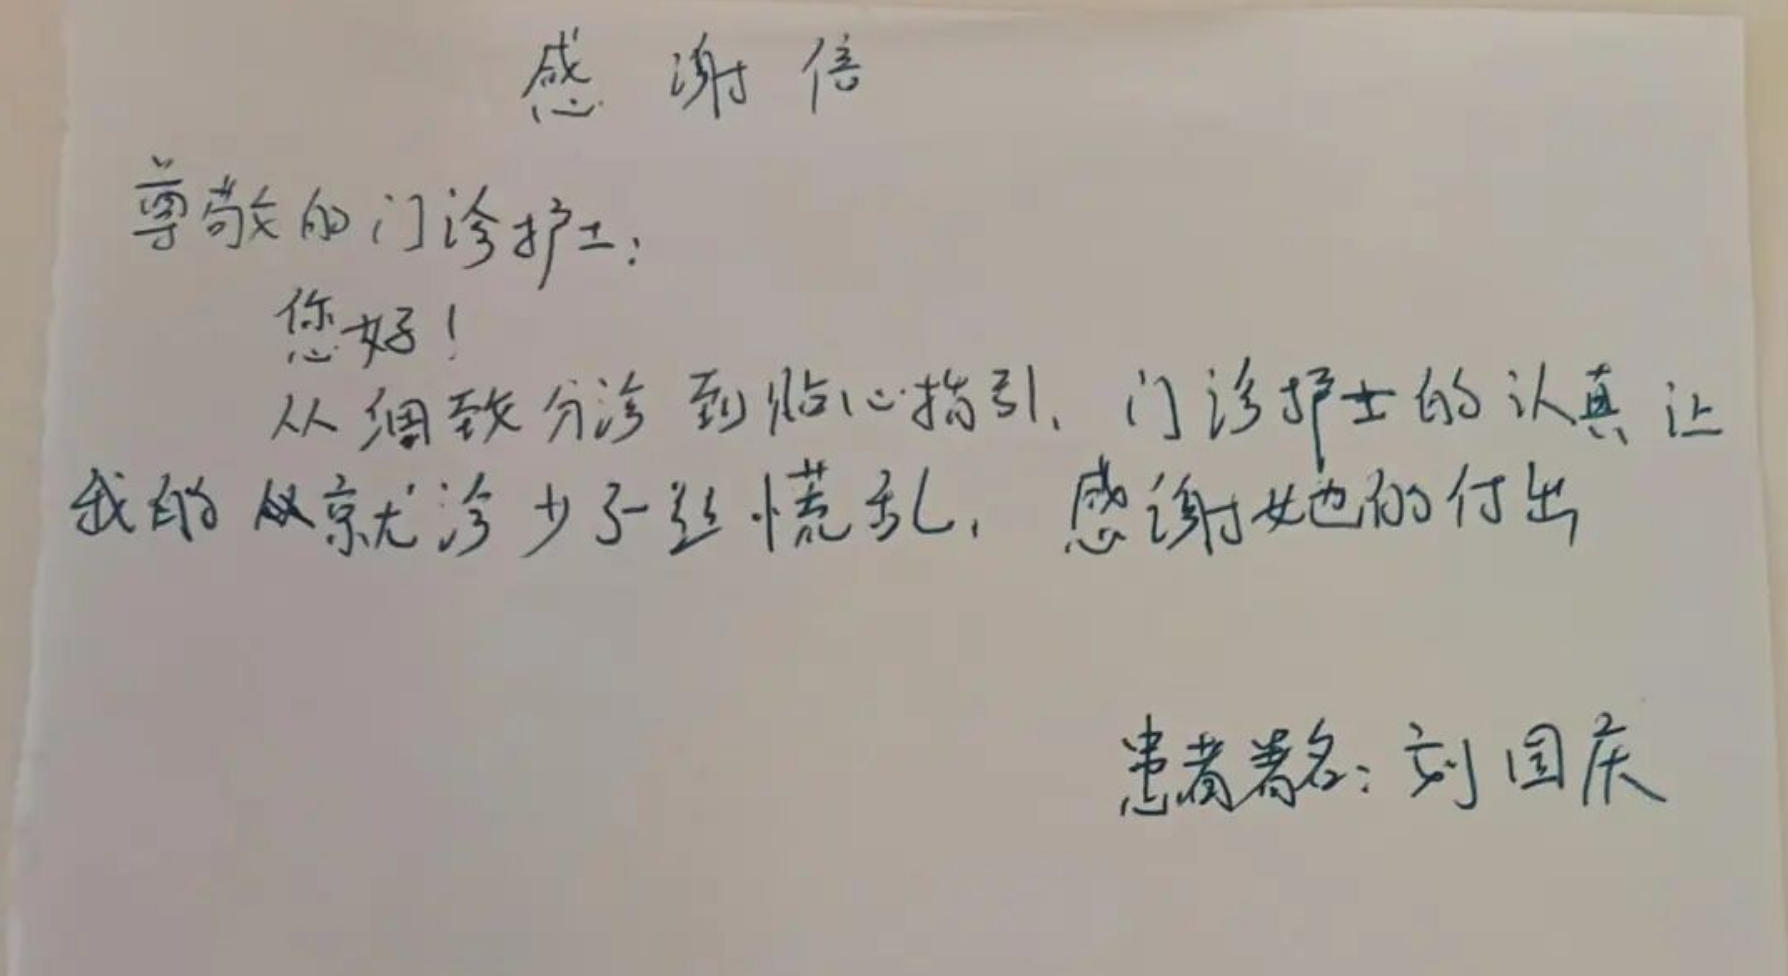 感谢信
尊敬的门诊护士：
您好！
从细致分诊到贴心指引，门诊护士的认真让
我的就诊少了一丝慌乱，感谢她的付出
患者署名：刘国庆